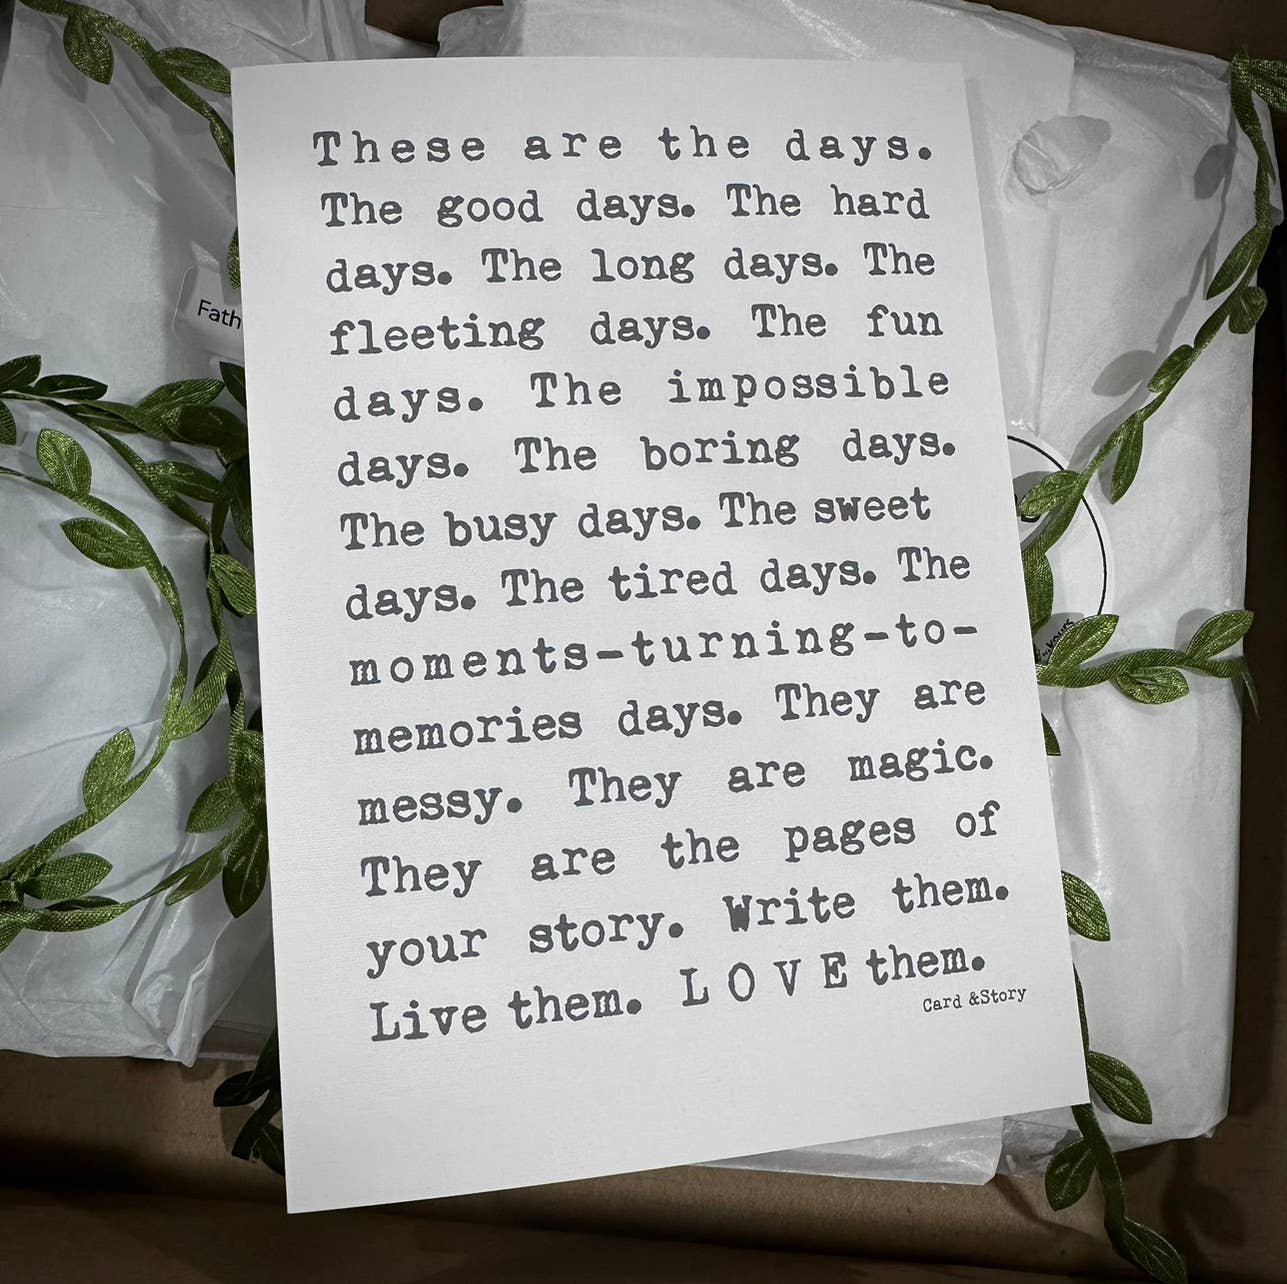 These are the days.
The good days. The hard
days. The long days. The
fleeting days. The fun
days. The impossible
days. The boring days.
The busy days. The sweet
days. The tired days. The
moments-turning-to-
memories days. They are
messy. They are magic.
They are the pages of
your story. Write them.
Live them. L O V E them.
Card &Story
Fath